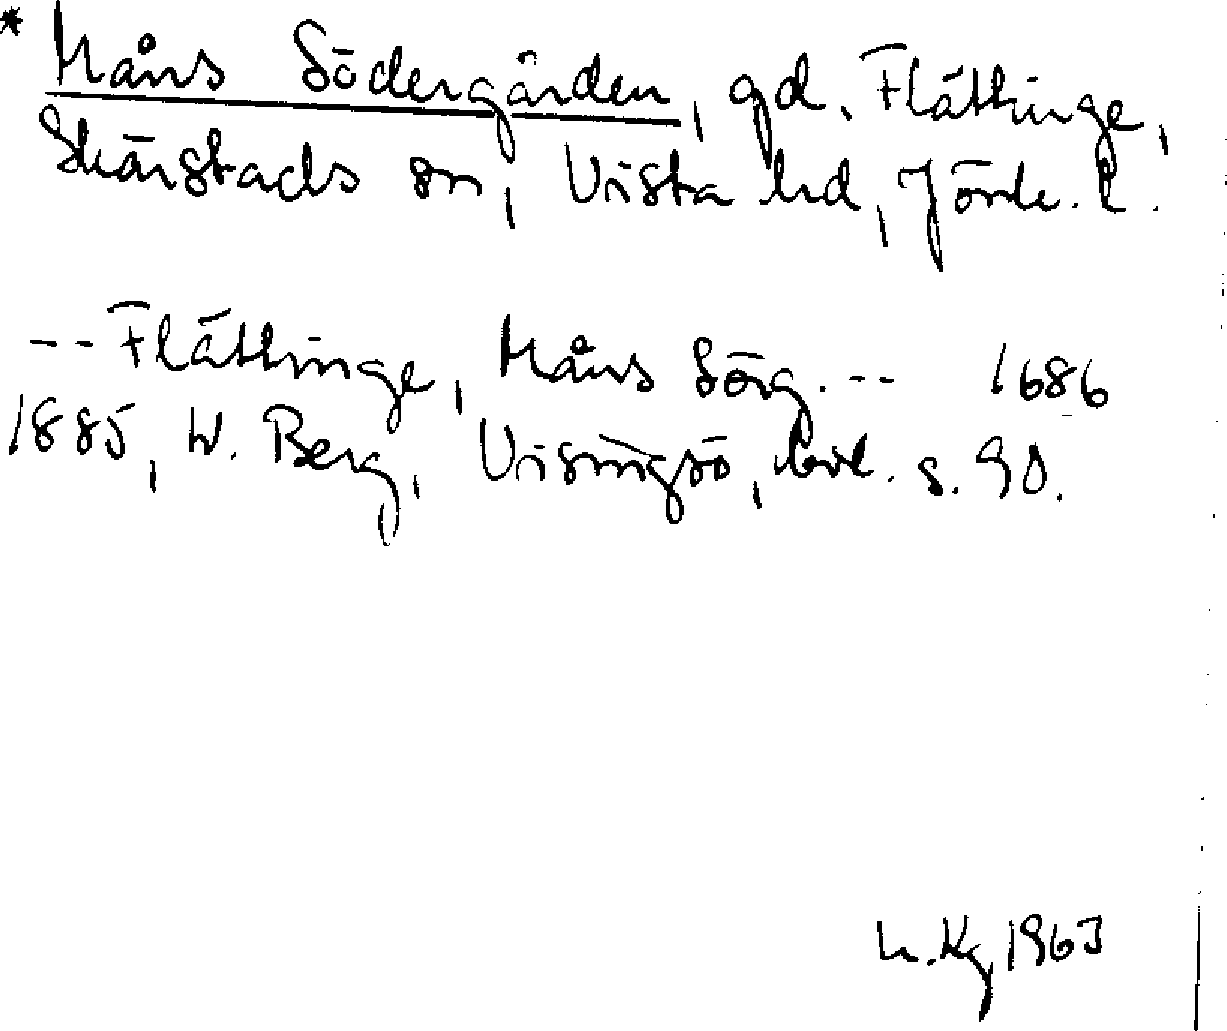 * Måns Södergården, gd. Flättinge,
Skärstads sn, Vista hd, Jönk. l.
-- Flättinge, Måns Sörg. -- 1686
1885, W. Berg, Visingsö, bil. s. 90.
1963